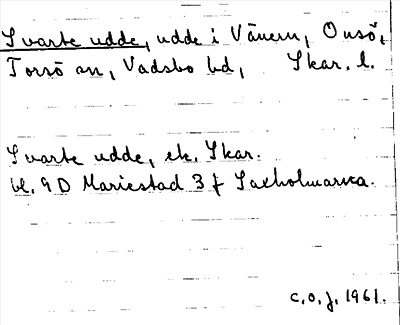 Svarte udde, udde i Vänern, Onsö,
Torsö sn, Vadsbo hd, Skar. l.
Svarte udde, ek. Skar.
bl. 9D Mariestad 3 f Laxholmarna.
C.O.J. 1961.